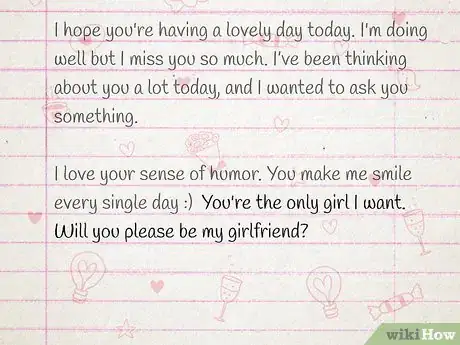 I hope you're having a lovely day today. I'm doing
well but I miss you so much. I've been thinking
about you a lot today, and I wanted to ask you
something.
I love your sense of humor. You make me smile
every single day :) You're the only girl I want.
Will you please be my girlfriend?
wikiHow